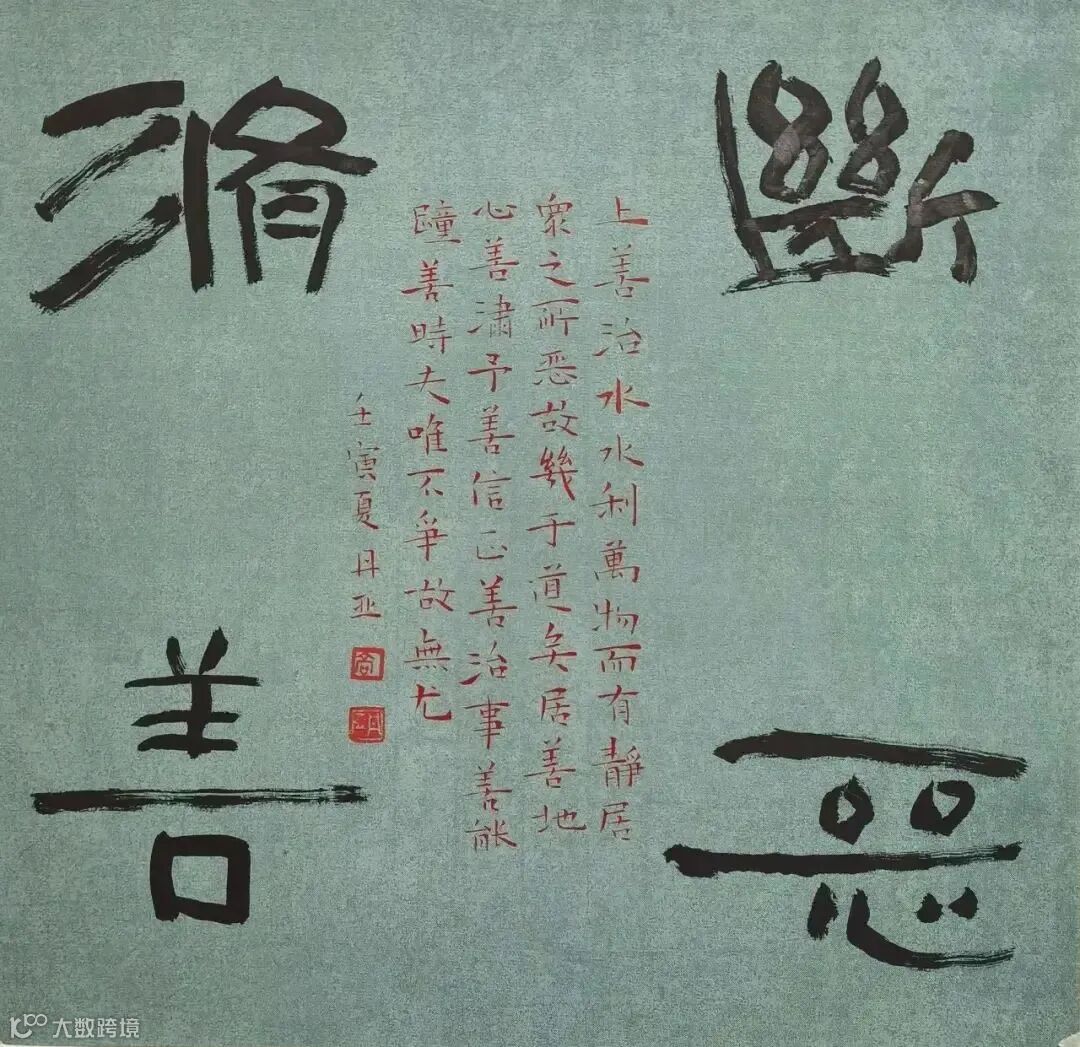 斷惡
脩善
上善治水水利萬物而有靜居
衆之所恶故幾于道矣居善地
心善潚予善信正善治事善能
善時夫唯不爭故無尤
壬寅夏丹亚
大数跨境